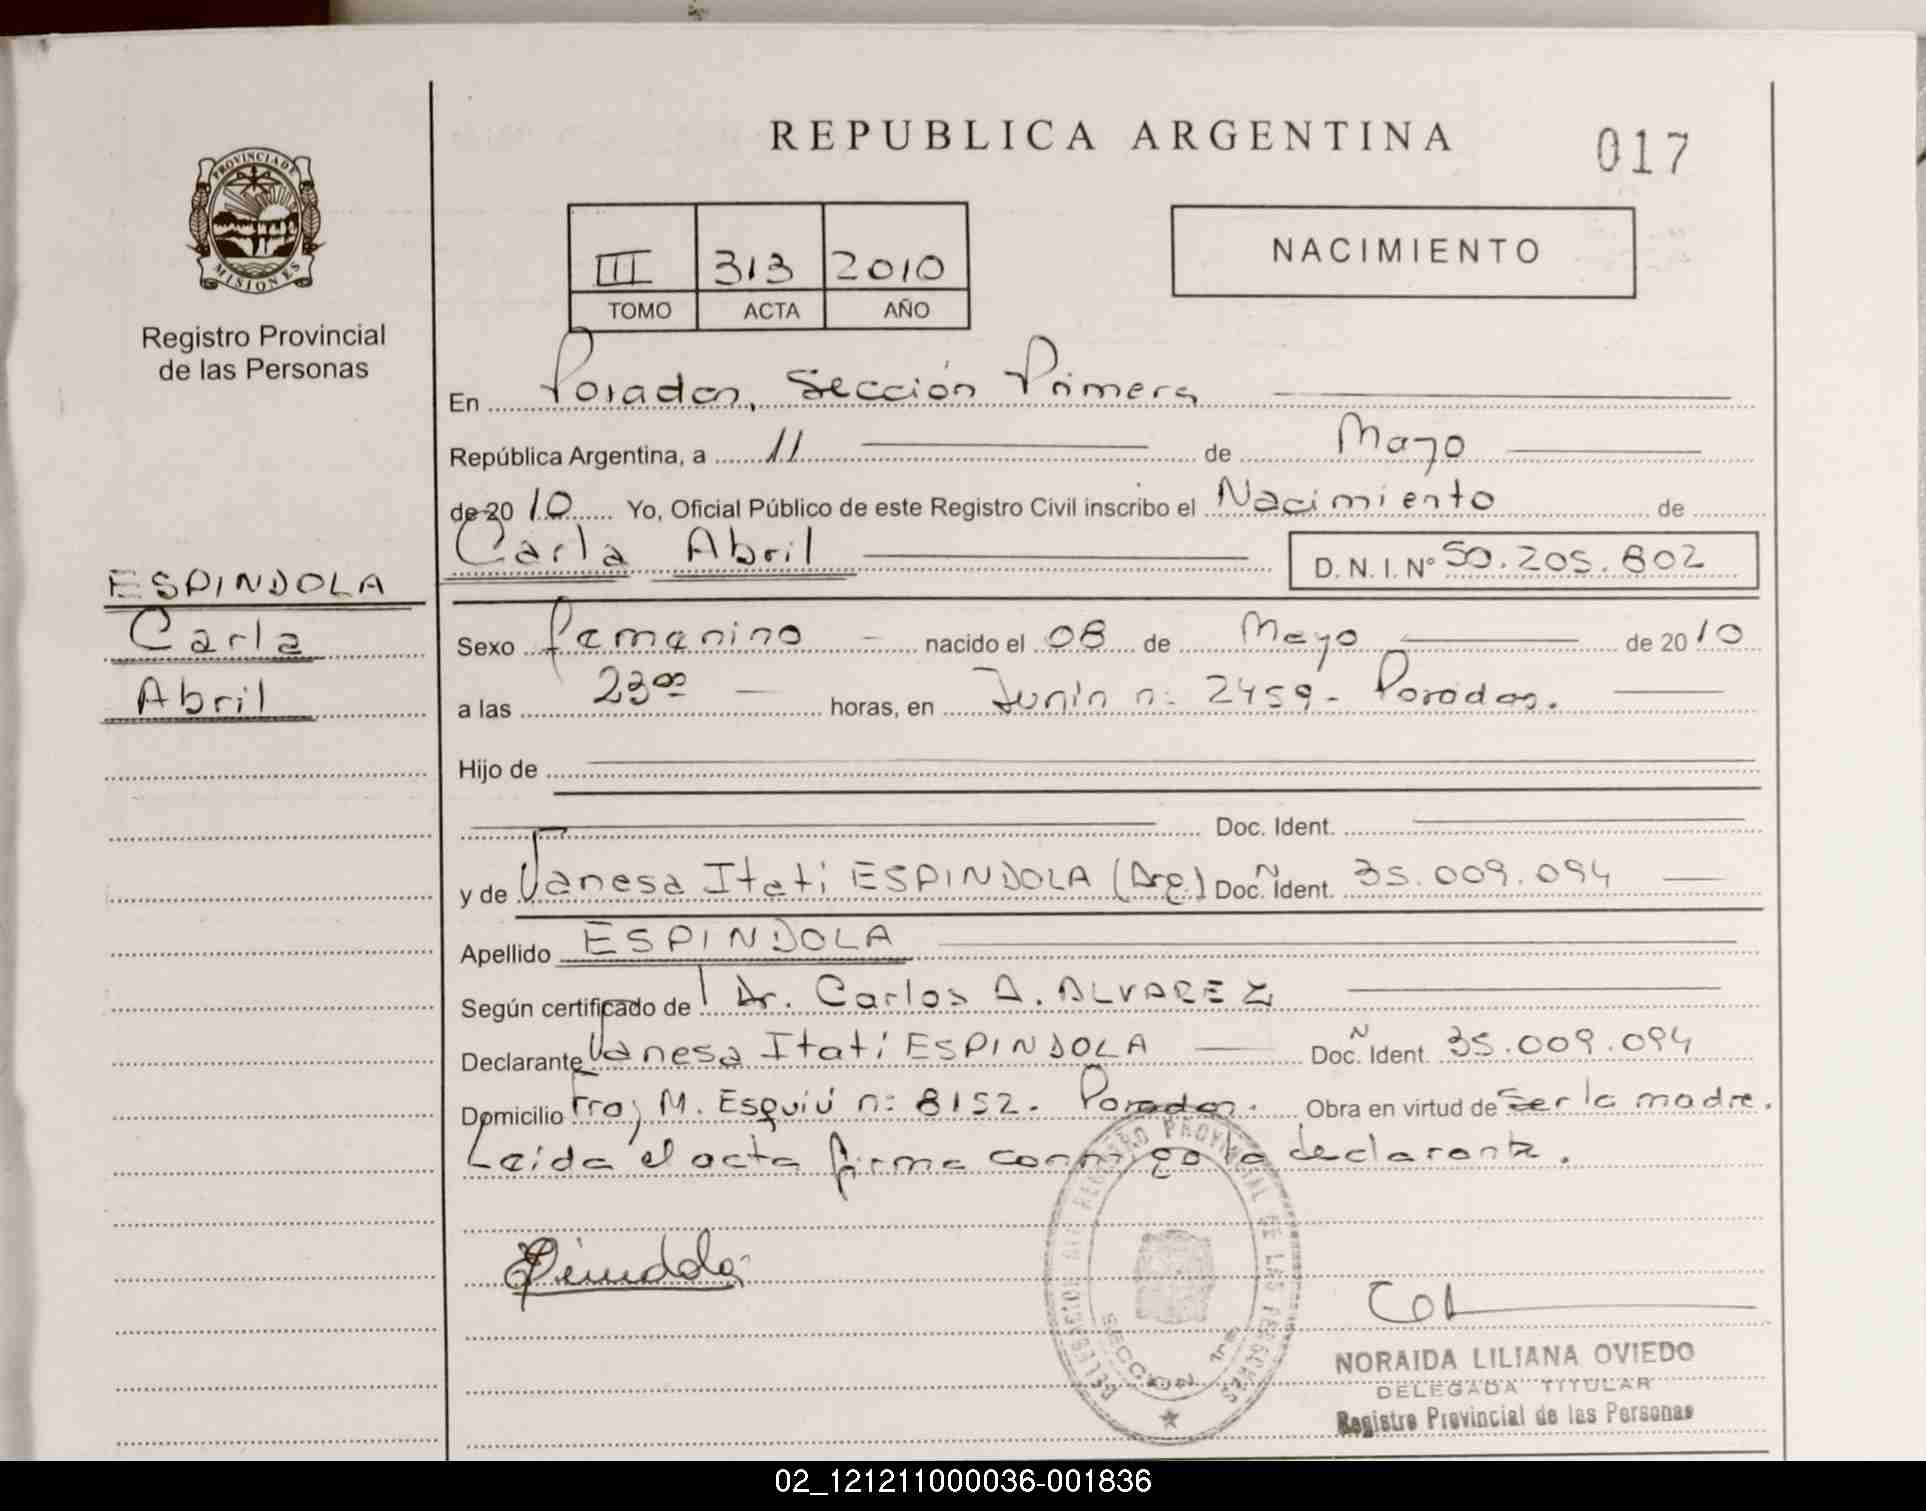 REPUBLICA ARGENTINA
017
PROVINCIA DE MISIONES
Registro Provincial
de las Personas
III 313 2010
TOMO ACTA AÑO
NACIMIENTO
En Posadas, Sección Primera
República Argentina, a 11 de Mayo
de 2010 Yo, Oficial Público de este Registro Civil inscribo el Nacimiento de
Carla Abril D. N. I. Nº 50.205.802
ESPINDOLA
Carla
Abril
Sexo femenino nacido el 08 de Mayo de 2010
a las 23⁰⁰ horas, en Junín n: 2459 - Posadas.
Hijo de
Doc. Ident.
y de Vanesa Itatí ESPINDOLA (Arg.) Doc. N Ident. 35.009.094
Apellido ESPINDOLA
Según certificado de Dr. Carlos A. ALVAREZ
Declarante Vanesa Itatí ESPINDOLA Doc. N Ident. 35.009.094
Domicilio Fray M. Esquiú n: 8152. Posadas. Obra en virtud de ser la madre.
Leída el acta firma conmigo la declarante.
DELEGACION DEL REGISTRO PROVINCIAL DE LAS PERSONAS
SECCION 1ra
NORAIDA LILIANA OVIEDO
DELEGADA TITULAR
Registro Provincial de las Personas
02_121211000036-001836